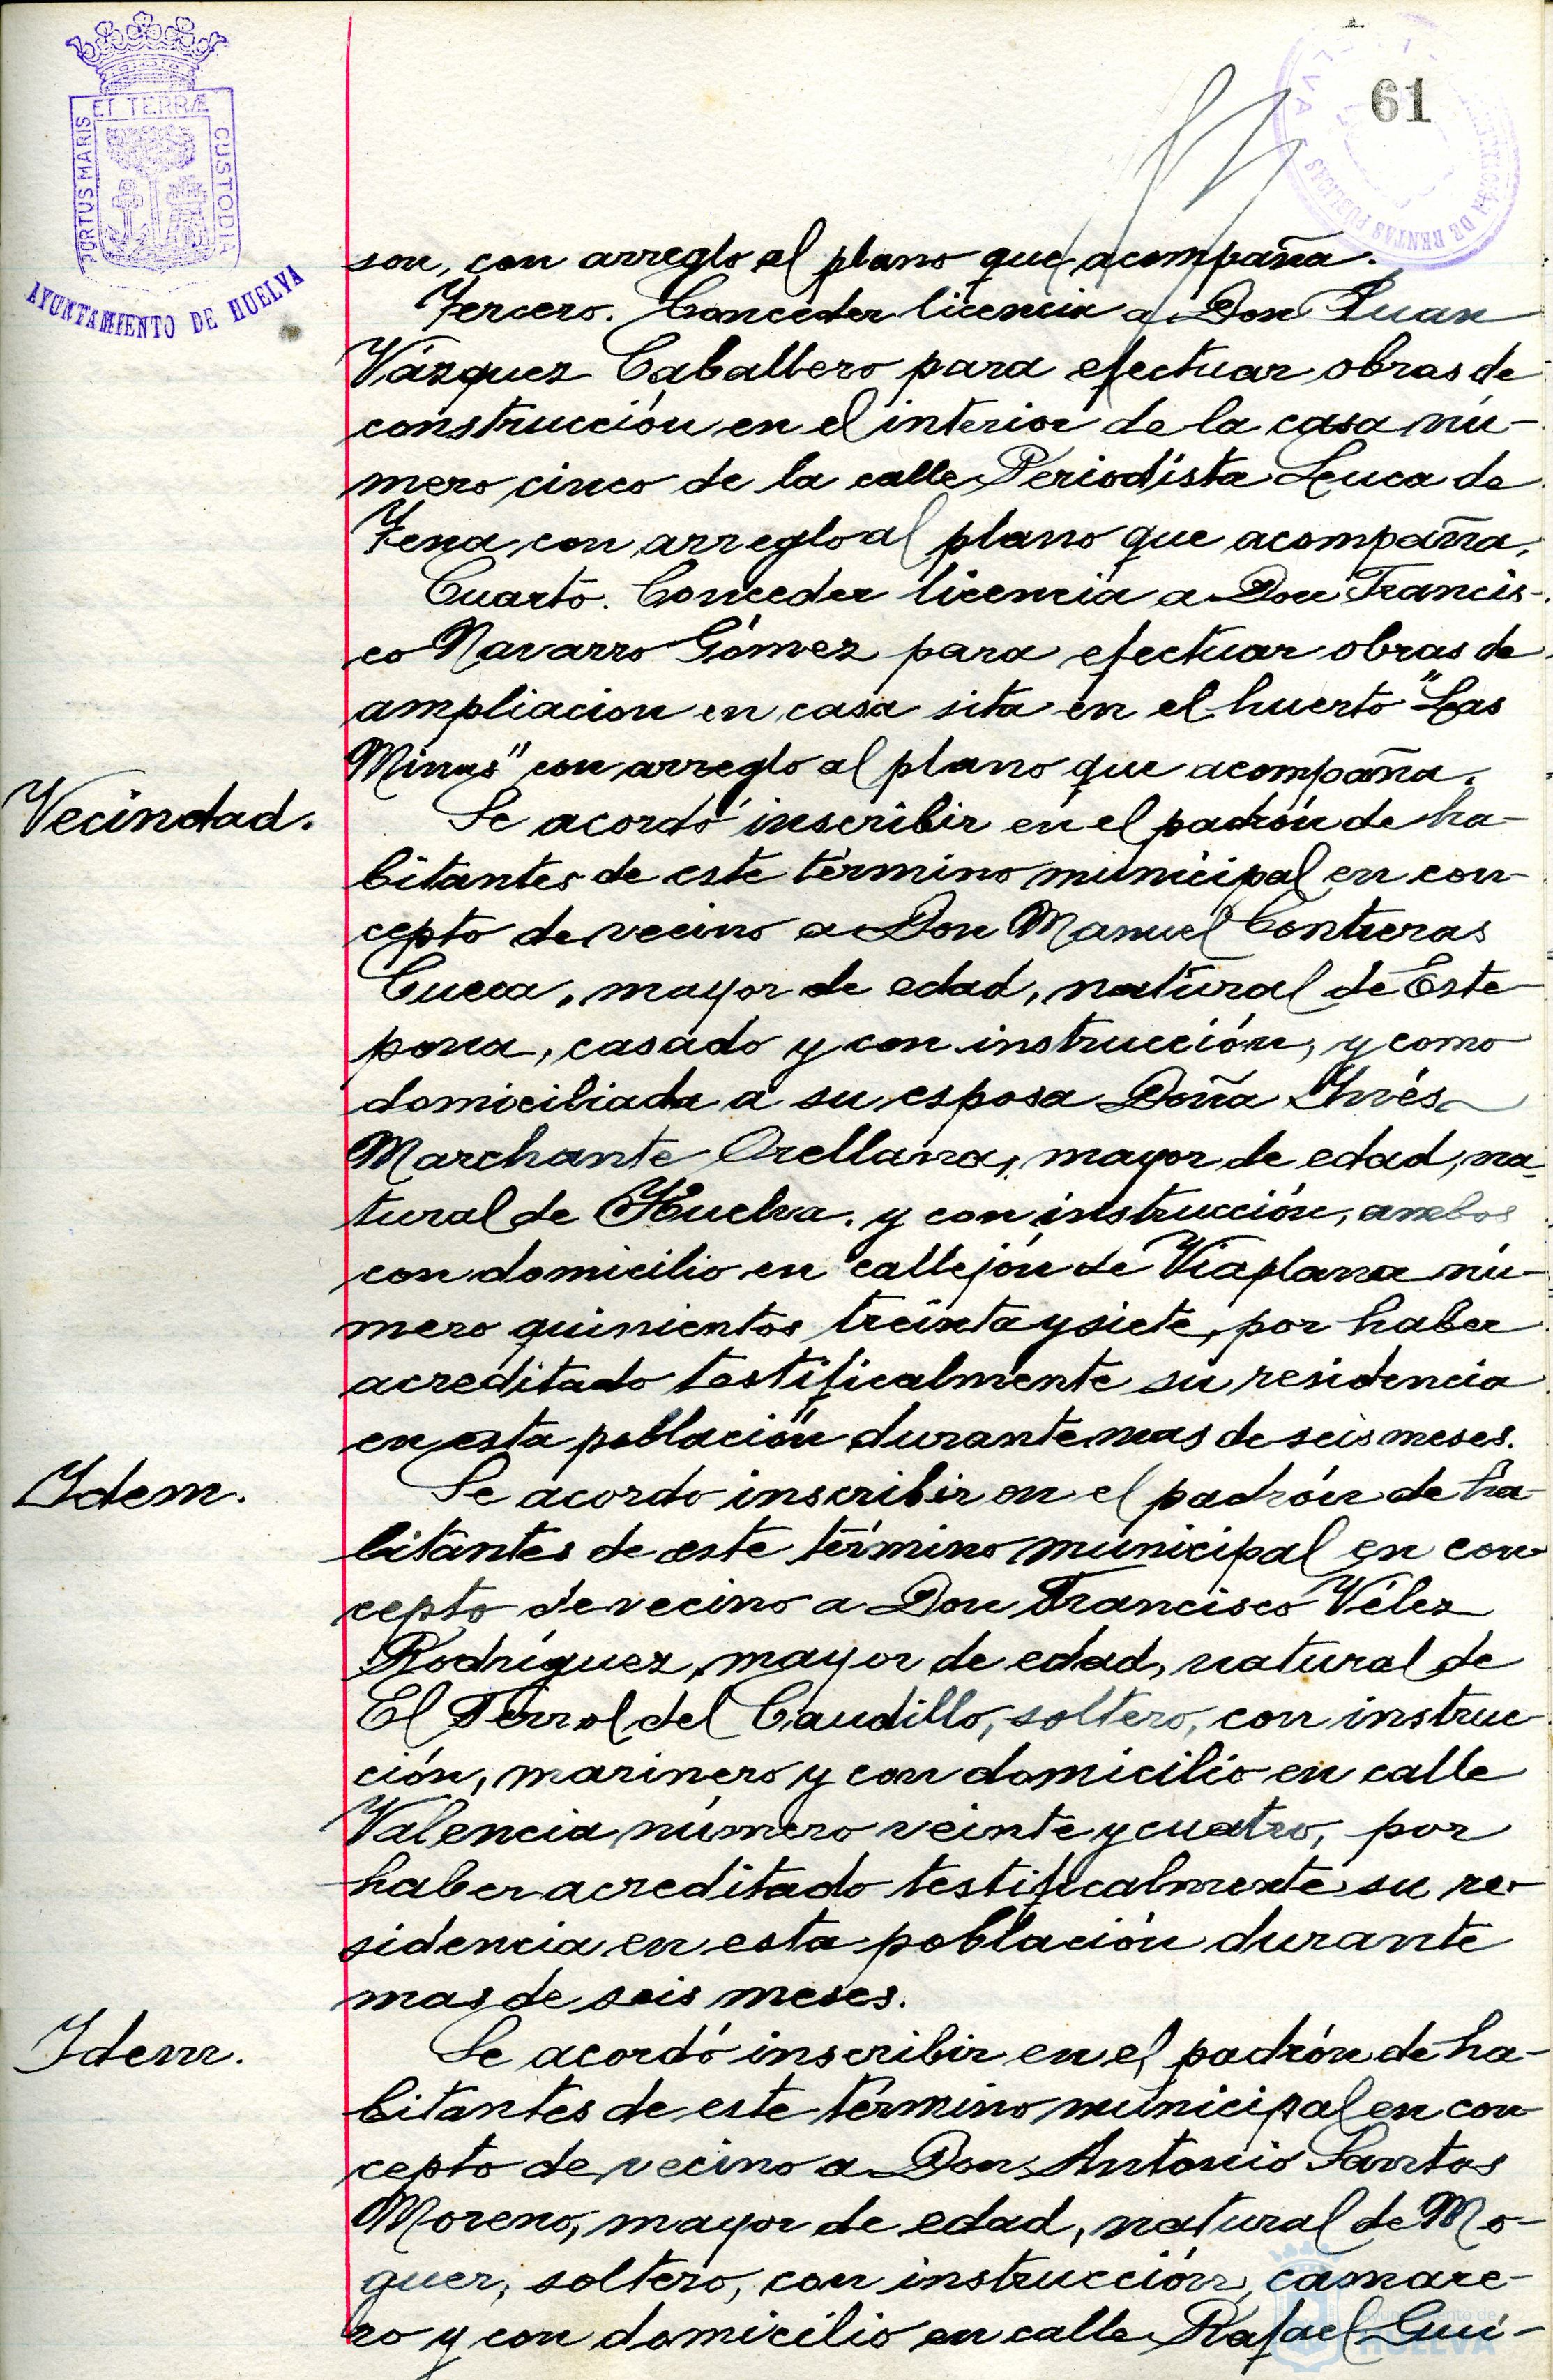 61
PORTUS MARIS ET TERRÆ CUSTODIA
AYUNTAMIENTO DE HUELVA
DE RENTAS PUBLICAS
son, con arreglo al plano que acompaña.
Tercero. Conceder licencia a Don Juan
Vázquez Caballero para efectuar obras de
construcción en el interior de la casa nú-
mero cinco de la calle Periodista Luca de
Tena con arreglo al plano que acompaña.
Cuarto. Conceder licencia a Don Francis-
co Navarro Gómez para efectuar obras de
ampliacion en casa sita en el huerto "Las
Minas" con arreglo al plano que acompaña.
Vecindad.
Se acordó inscribir en el padrón de ha-
bitantes de este término municipal en con
cepto de vecino a Don Manuel Contreras
Cueca, mayor de edad, natural de Este
pona, casado y con instrucción, y como
domiciliada a su esposa Doña Inés
Marchante Orellana, mayor de edad, na-
tural de Huelva. y con instrucción, ambos
con domicilio en callejón de Viaplana nú-
mero quinientos treinta y siete, por haber
acreditado testificalmente su residencia
en esta población durante mas de seis meses.
Idem.
Se acordó inscribir en el padrón de ha
bitantes de este término municipal en con
cepto de vecino a Don Francisco Vélez
Rodríguez, mayor de edad, natural de
El Ferrol del Caudillo, soltero, con instruc
ción, marinero y con domicilio en calle
Valencia número veinte y cuatro, por
haber acreditado testificalmente su re-
sidencia en esta población durante
mas de seis meses.
Idem.
Se acordó inscribir en el padrón de ha-
bitantes de este término municipal en con
cepto de vecino a Don Antonio Santos
Moreno, mayor de edad, natural de Mo-
guer, soltero, con instrucción, camare-
ro y con domicilio en calle Rafael Gui-
Ayuntamiento de
HUELVA